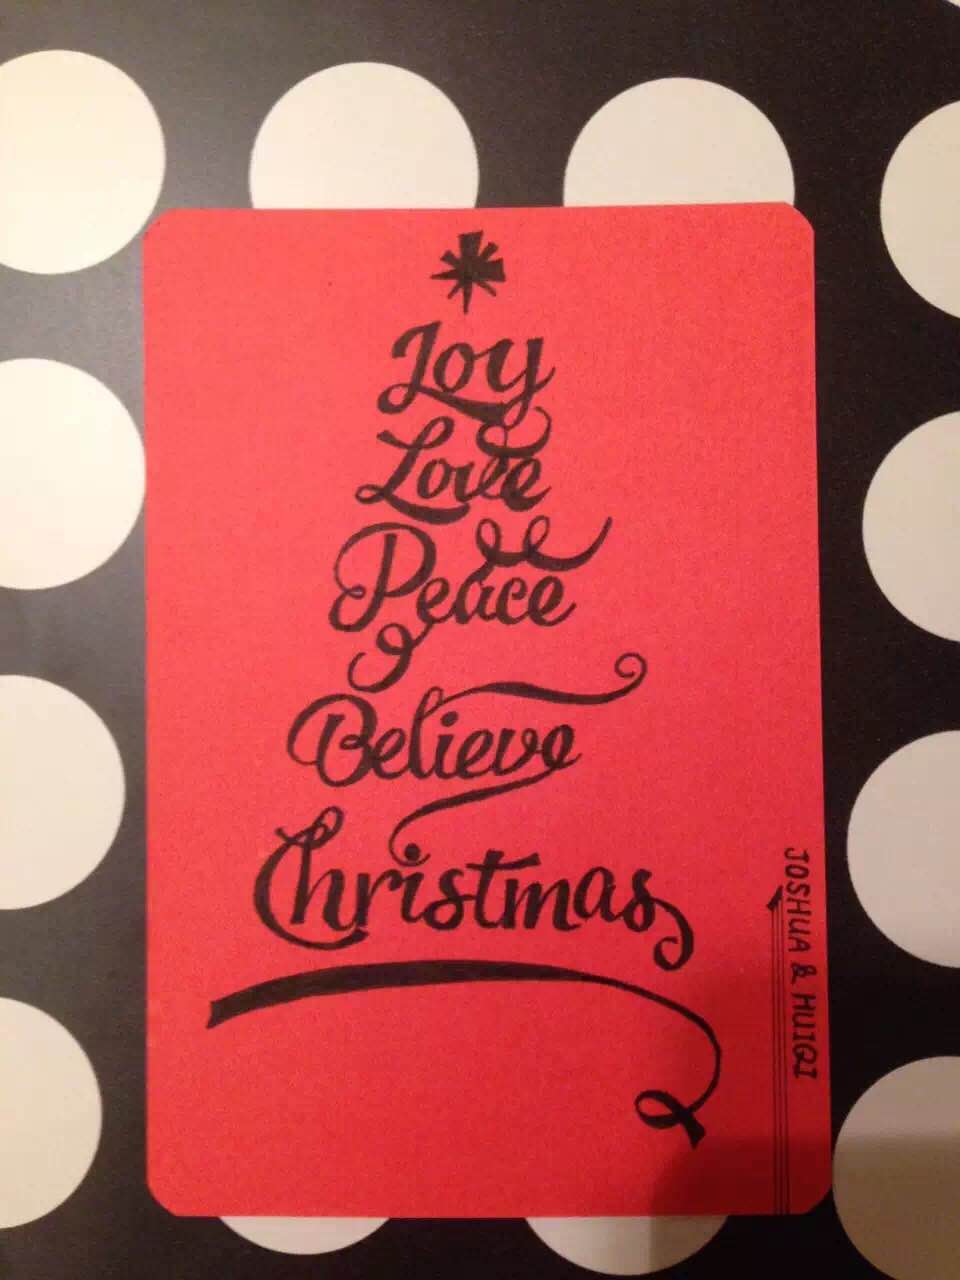 Joy
Love
Peace
Believe
Christmas
JOSHUA & HUIQI